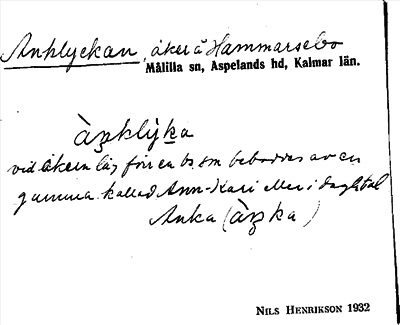 Anklyckan, åker å Hammarsebo
Målilla sn, Aspelands hd, Kalmar län.
àŋklýka
vid åkern låg förr en bs. som beboddes av en
gumma kallad Ann-Kari eller i dagligtal
Anka (àŋka)
NILS HENRIKSON 1932